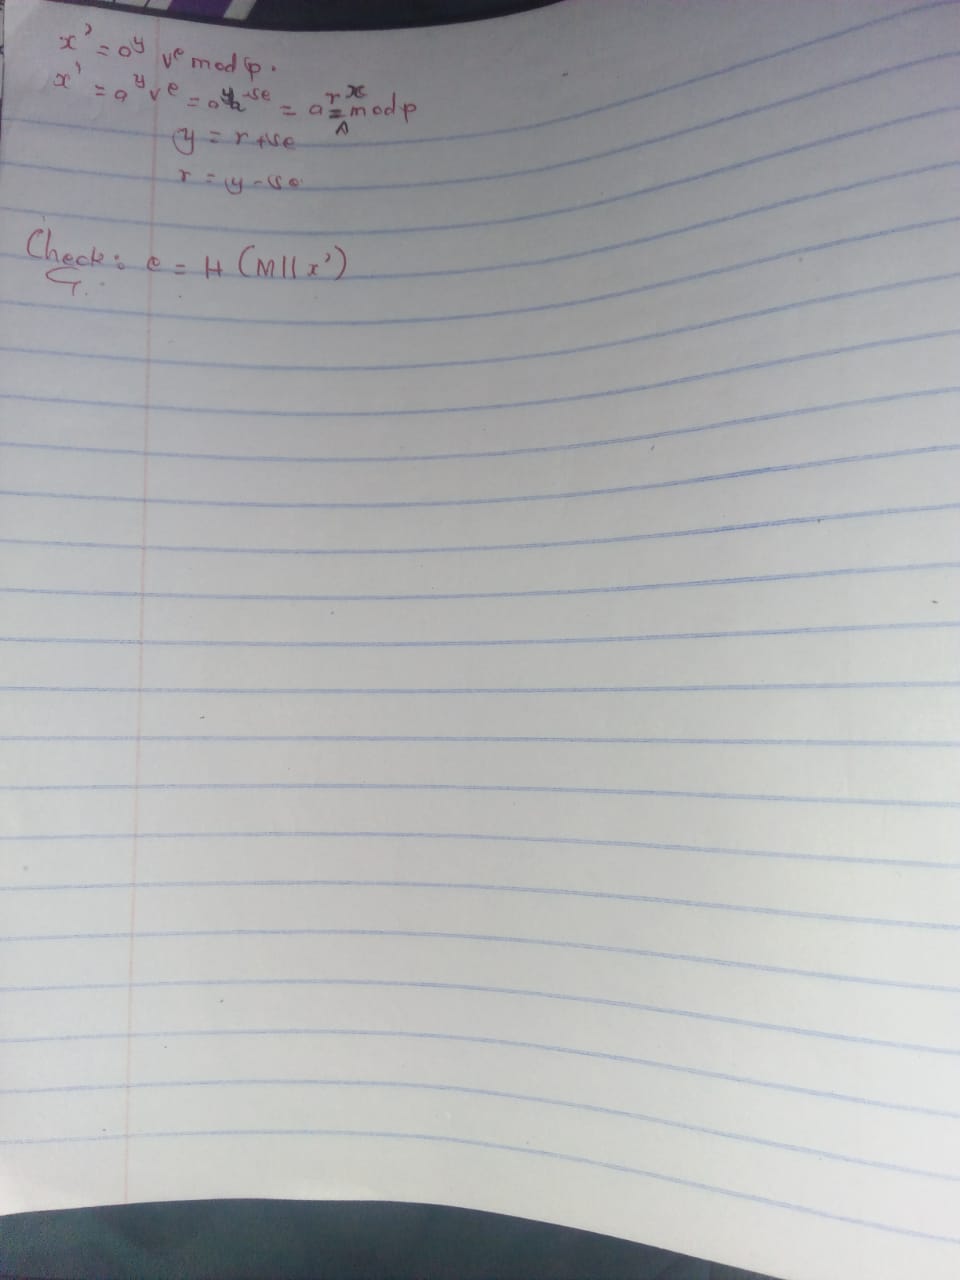 x' = a^y v^e mod p.
x' = a^y v^e = a^y-se = a^r = x mod p
y = r + se
r = y - se
Check: e = H (M || x')